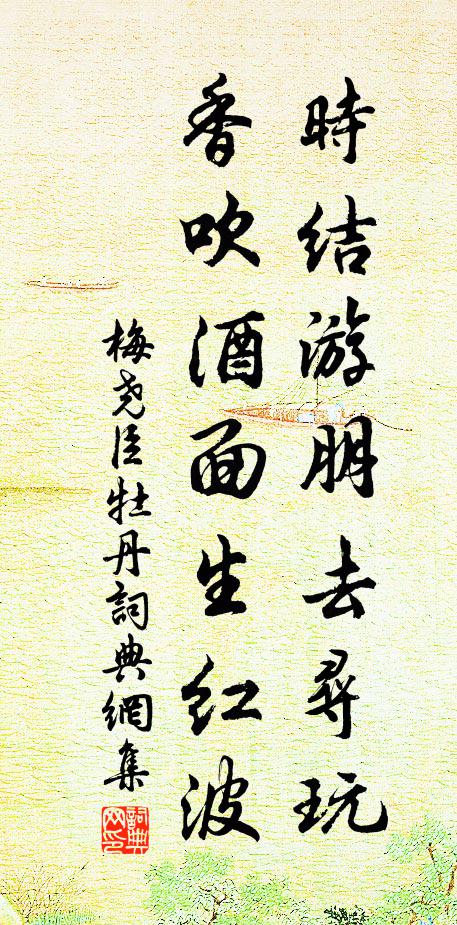 時結游朋去尋玩
香吹酒面生红波
梅尧臣牡丹詞典網集
詞典网印